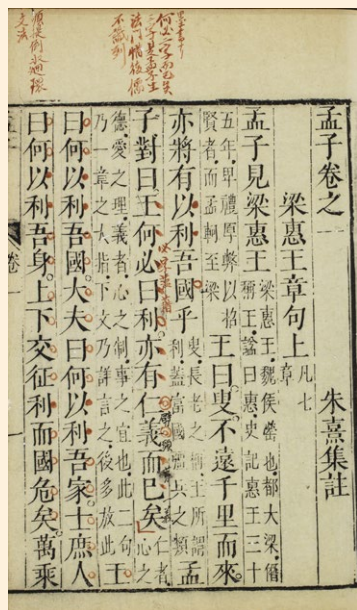 孟子卷之一　朱熹集註
梁惠王章句上 凡七章
孟子見梁惠王 梁惠王魏侯罃也都大梁僭稱王諡曰惠史記惠王三十
五年卑禮厚幣以招賢者而孟軻至梁 王曰叟不遠千里而來
亦將有以利吾國乎 叟長老之稱王所謂利蓋富國彊兵之類 孟
子對曰王何必曰利亦有仁義而已矣 仁者心之
德愛之理義者心之制事之宜也此二句乃一章之大指下文乃詳言之後多放此 王
曰何以利吾國大夫曰何以利吾家士庶人
曰何以利吾身上下交征利而國危矣萬乘
卷一